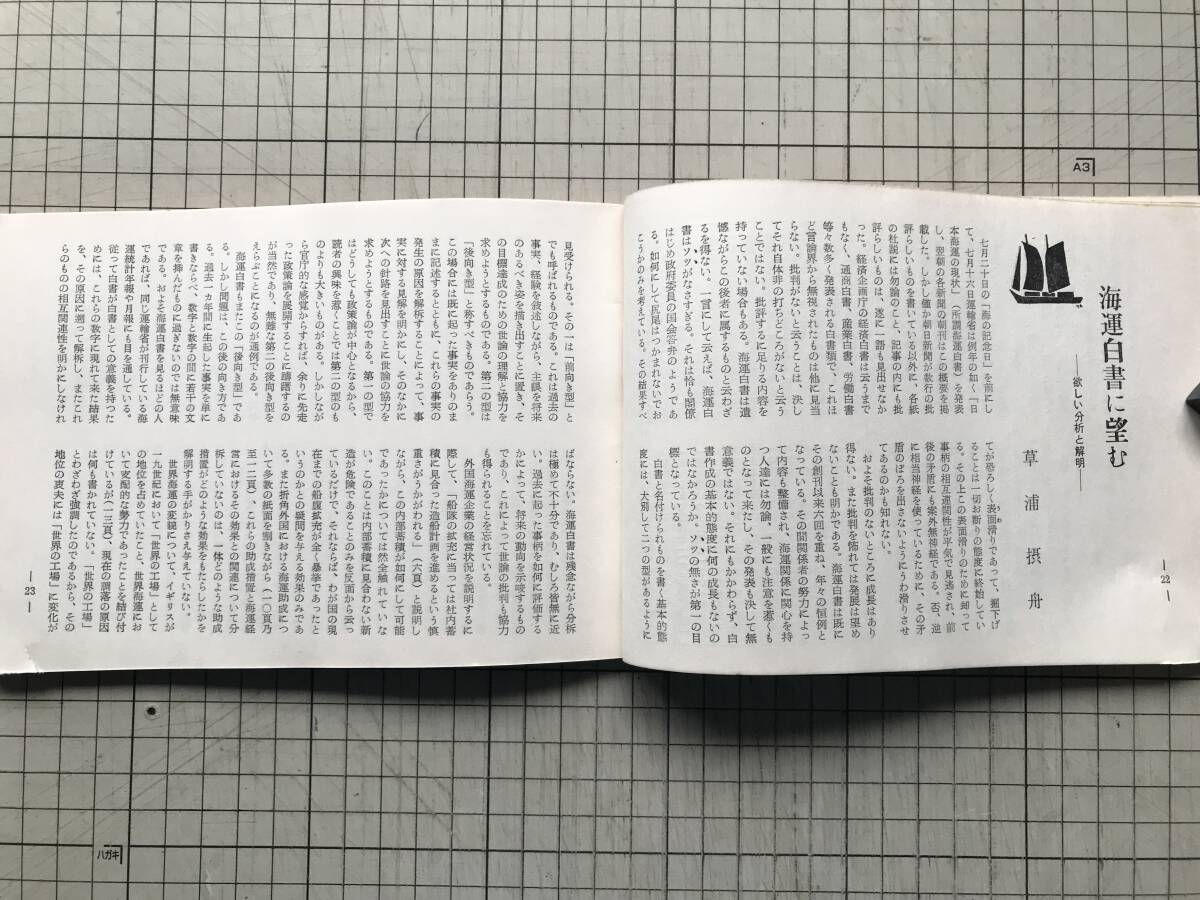 海運白書に望む
―欲しい分析と解明―
草浦摂舟
七月二十日の「海の記念日」を前にし
て、七月十六日運輸省は例年の如く「日
本海運の現状」(所謂海運白書)を発表
し、翌朝の各新聞の朝刊はこの概要を掲
載した。しかし僅か朝日新聞が数行の批
評らしいものを書いている以外に、各紙
の社説には勿論のこと、記事の内にも批
評らしいものは、遂に一語も見出せなか
った。経済企画庁の経済白書は云うまで
もなく、通商白書、産業白書、労働白書
等々数多く発表される白書類で、これほ
ど言論界から無視されたものは他に見当
らない。批判がないと云うことは、決し
てそれ自体非の打ちどころがないと云う
ことではない。批評するに足りる内容を
持っていない場合もある。海運白書は遺
憾ながらこの後者に属するものと云わざ
るを得ない。一言にして云えば、海運白
書はソツがなさすぎる。それは恰も関僚
はじめ政府委員の国会答弁のようであ
る。如何にして尻尾はつかまれないでお
こうかのみを考えている。その結果すべ
てが恐ろしく表面滑りであって、掘下げ
ることは一切お断りの態度に終始してい
る。その上この表面滑りのために却って
事柄の相互連関性が平気で見逃され、前
後の矛盾にも案外無神経である。否、逆
に相当神経を使っているために、その矛
盾のぼろを出さないようにうわ滑りさせ
てあるのかも知れない。
およそ批判のないところに成長はあり
得ない。また批判を怖れては発展は望め
ないことも明かである。海運白書は既に
その創刊以来六回を重ね、年々の恒例と
なっている。その間関係者の努力によっ
て内容も整備され、海運関係に関心を持
つ人達には勿論、一般にも注意を惹くも
のとなって来たし、その発表も決して無
意義ではない。それにもかかわらず、白
書作成の基本的態度に何の成長もないの
ではなかろうか。ソツの無さが第一の目
標となっている。
白書と名付けられものを書く基本的態
度には、大別して二つの型があるように
―22―
見受けられる。その一は「前向き型」と
でも呼ばれるものである。これは過去の
事実、経験を叙述しながら、主眼を将来
のあるべき姿を描き出すことに置き、そ
の目標達成のための世論の理解と協力を
求めようとするものである。第二の型は
「後向き型」と称すべきものであろう。
この場合には既に起った事実をありのま
まに記述するとともに、これらの事実の
発生の原因を解析することによって、事
実に対する見解を明かにし、そのなかに
次への針路を見出すことに世論の協力を
求めようとするものである。第一の型で
はどうしても政策論が中心となるから、
読者の興味を惹くことでは第二の型のも
のよりも大きいものがある。しかしなが
ら官庁的な感覚からすれば、余りに先走
った政策論を展開することに躊躇するの
が当然であり、無難な第二の後向き型を
えらぶことになるのが通例である。
海運白書もまたこの「後向き型」であ
る。しかし問題は、この後の向き方であ
る。過去一カ年間に生起した事実を単に
書きならべ、数字と数字の間に若干の文
章を挿んだものに過ぎないのでは無意味
である。およそ海運白書を見るほどの人
であれば、同じ運輸省が刊行している海
運統計年報や月報にも目を通している。
従って白書が白書としての意義を持つた
めには、これらの数字に現れて来た結果
を、その原因に遡って解析し、またこれ
らのものの相互関連性を明かにしなけれ
ばならない。海運白書は残念ながら分析
は極めて不十分であり、むしろ皆無に近
い。過去に起った事柄を如何に評価する
かによって、将来の動向を示唆するもの
であり、これによって世論の批判も協力
も得られることを忘れている。
外国海運企業の経営状況を説明するに
際して、「船隊の拡充に当っては社内蓄
積に見合った造船計画を進めるという慎
重さがうかがわれる」(六頁)と説明し
ながら、この内部蓄積が如何にして可能
であったかについては然全触れていな
い。このことは内部蓄積に見合わない新
造が危険であることのみを反面から云っ
ているだけで、それならば、わが国の現
在までの船腹拡充が全く暴挙であったと
いうのかとの疑問を与える効果のみであ
る。また折角外国における海運助成につ
いて多数の紙面を割きながら(一〇頁乃
至一二頁)、これらの助成措置と海運経
営におけるその効果との関連について分
析していないのは、一体どのような助成
措置がどのような効果をもたらしたかを
解明する手がかりさえ与えていない。
世界海運の変貌について、イギリスが
一九世紀において「世界の工場」として
の地位を占めていたこと、世界海運にお
いて支配的な勢力であったことを結び付
けているが(一三頁)、現在の凋落の原因
は何も書かれていない。「世界の工場」
とわざわざ強調したのであるから、その
地位の喪失には「世界の工場」に変化が
―23―
A3
ハガキ